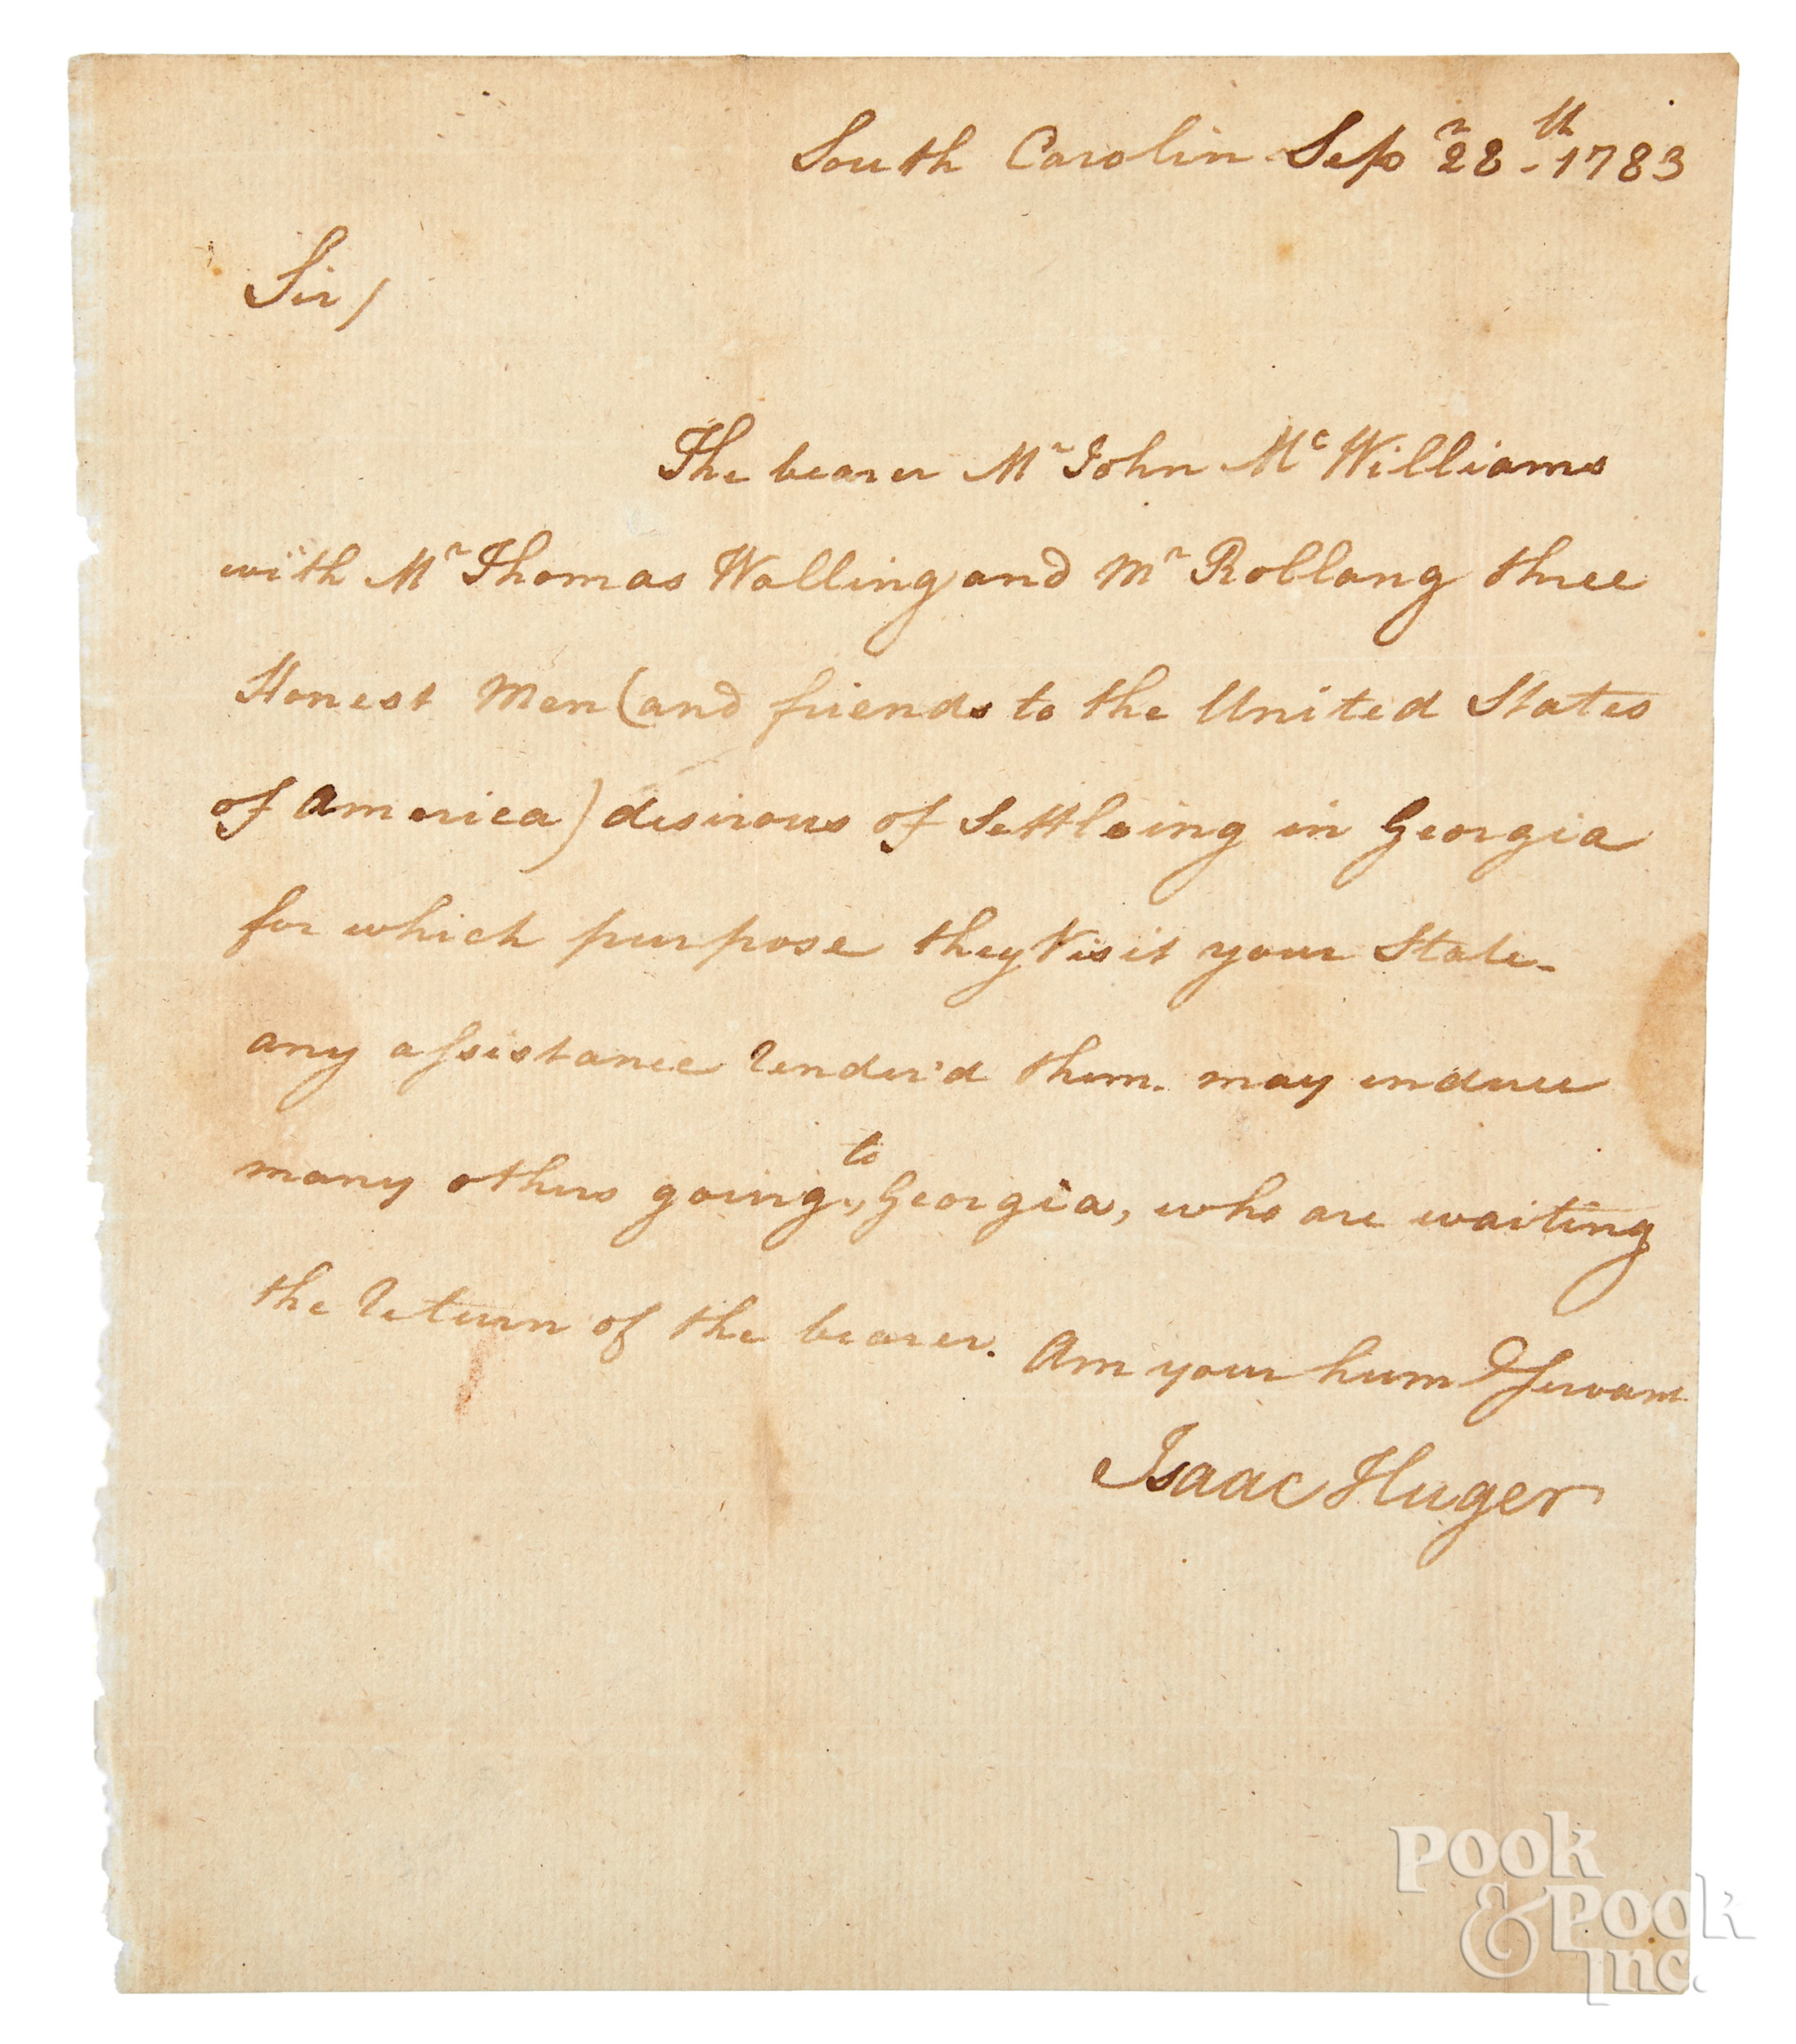 South Carolin Sepr 28th 1783
Sir/
The bearer Mr John McWilliams
with Mr Thomas Walling and Mr Roblang three
Honest Men (and friends to the United States
of America) desirous of Settleing in Georgia
for which purpose they Visit your State-
any assistance render'd them may induce
many others going to Georgia, who are waiting
the return of the bearer. Am your humb servant
Isaac Huger
Pook
& Pook
Inc.